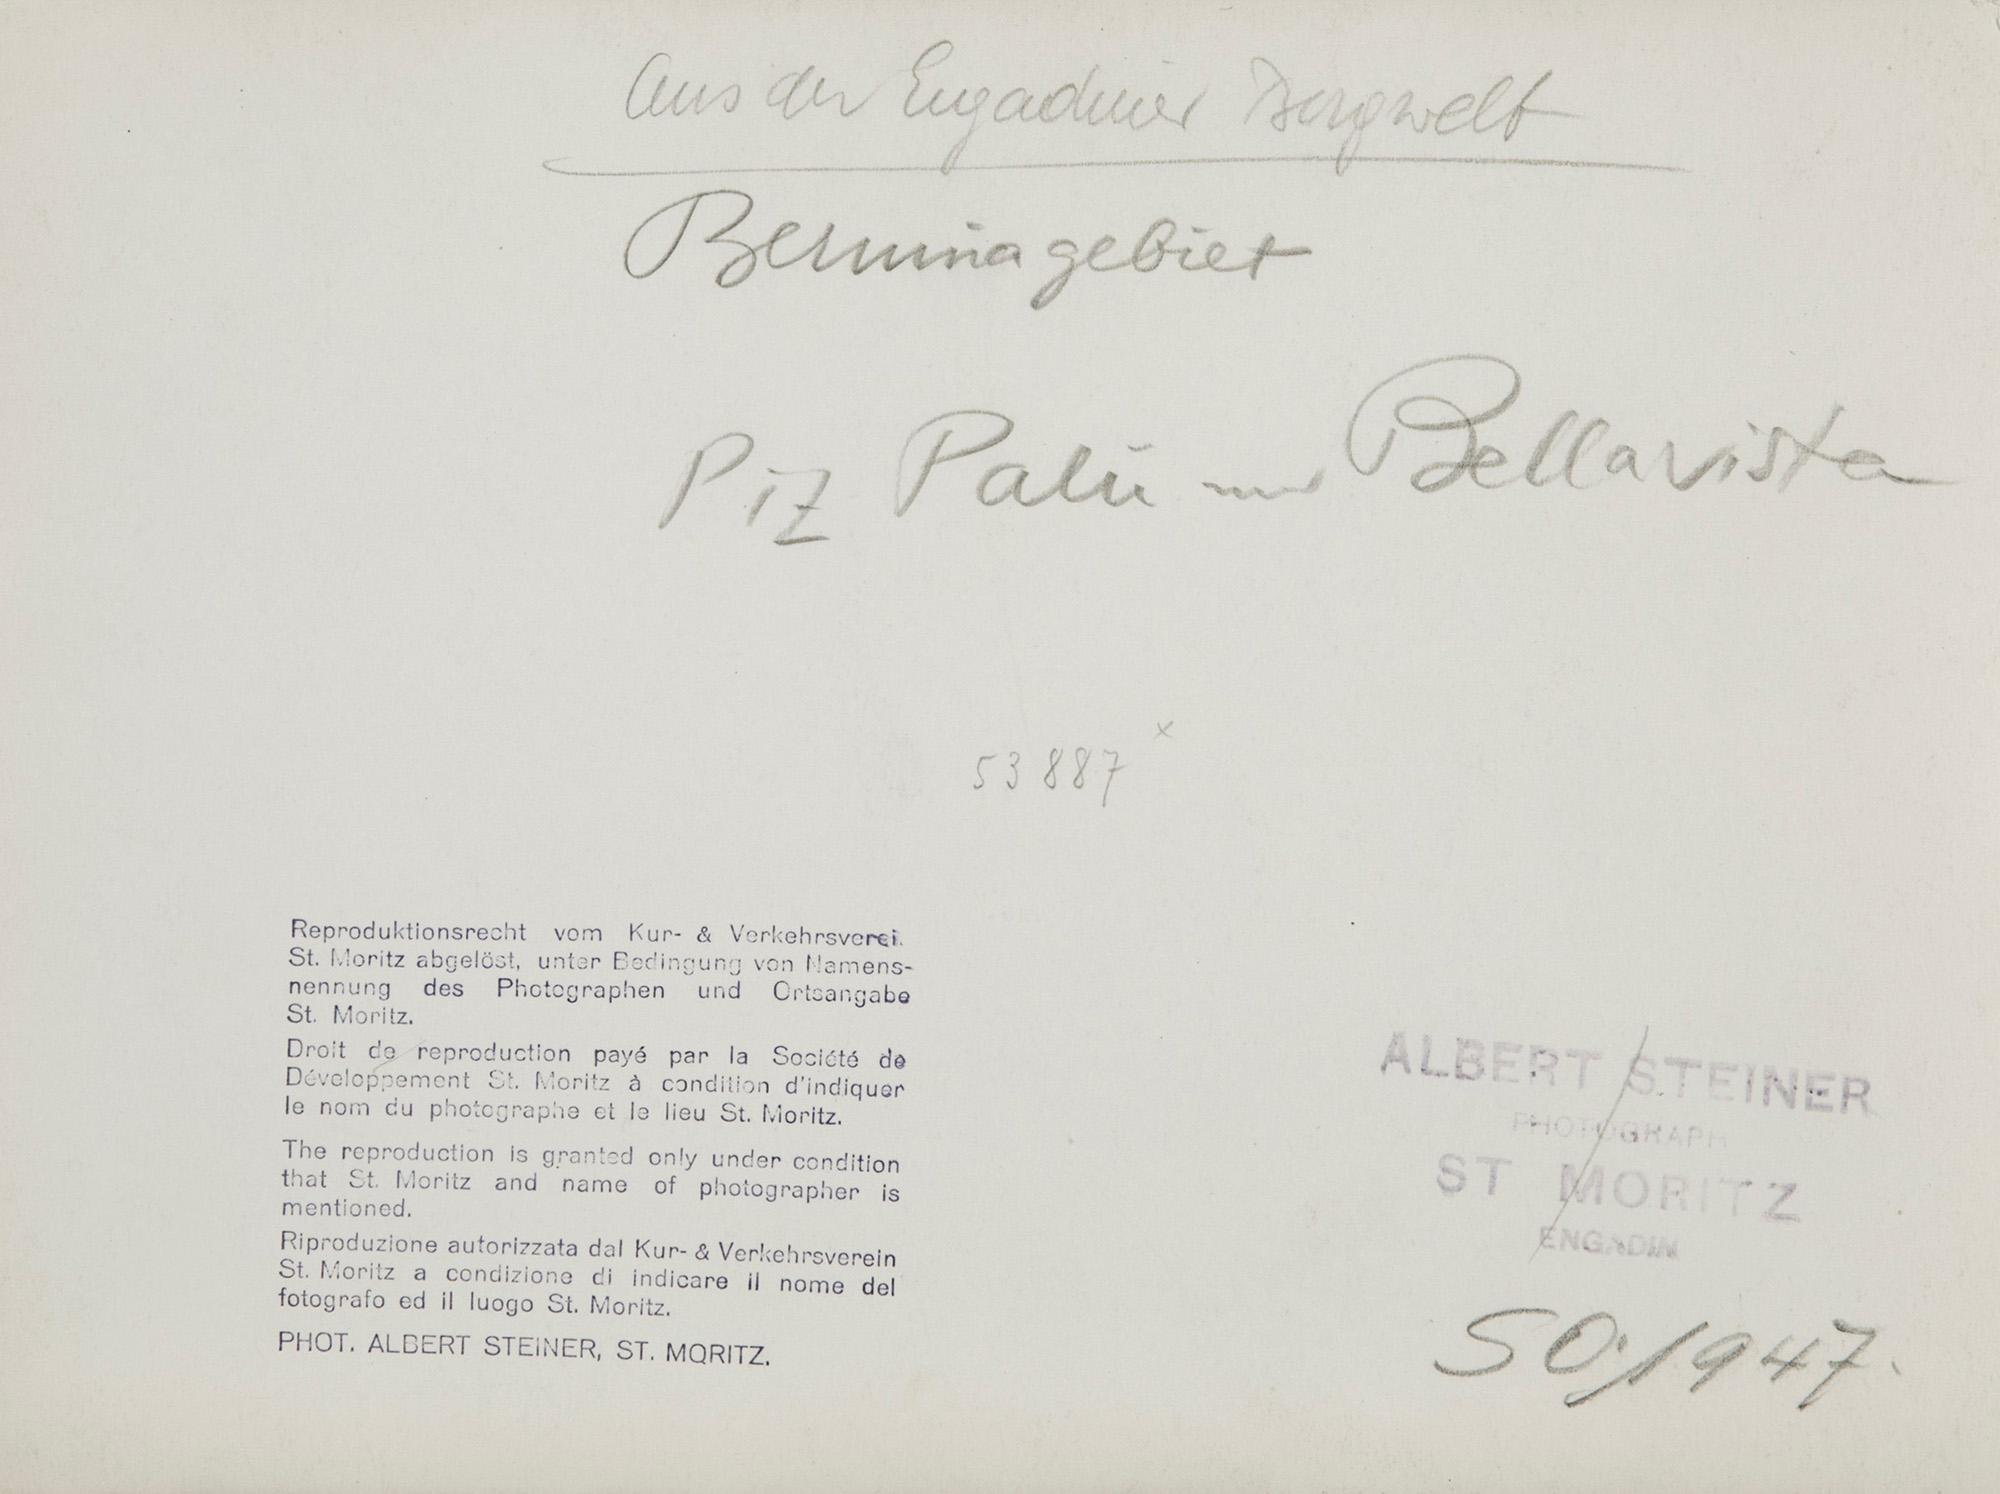 Aus der Engadiner Bergwelt
Berninagebiet
Piz Palü und Bellavista
53887 x
Reproduktionsrecht vom Kur- & Verkehrsverei.
St. Moritz abgelöst, unter Bedingung von Namens-
nennung des Photographen und Ortsangabe
St. Moritz.
Droit de reproduction payé par la Société de
Développement St. Moritz à condition d'indiquer
le nom du photographe et le lieu St. Moritz.
The reproduction is granted only under condition
that St. Moritz and name of photographer is
mentioned.
Riproduzione autorizzata dal Kur- & Verkehrsverein
St. Moritz a condizione di indicare il nome del
fotografo ed il luogo St. Moritz.
PHOT. ALBERT STEINER, ST. MORITZ.
ALBERT STEINER
PHOTOGRAPH
ST MORITZ
ENGADIN
SO./1947.